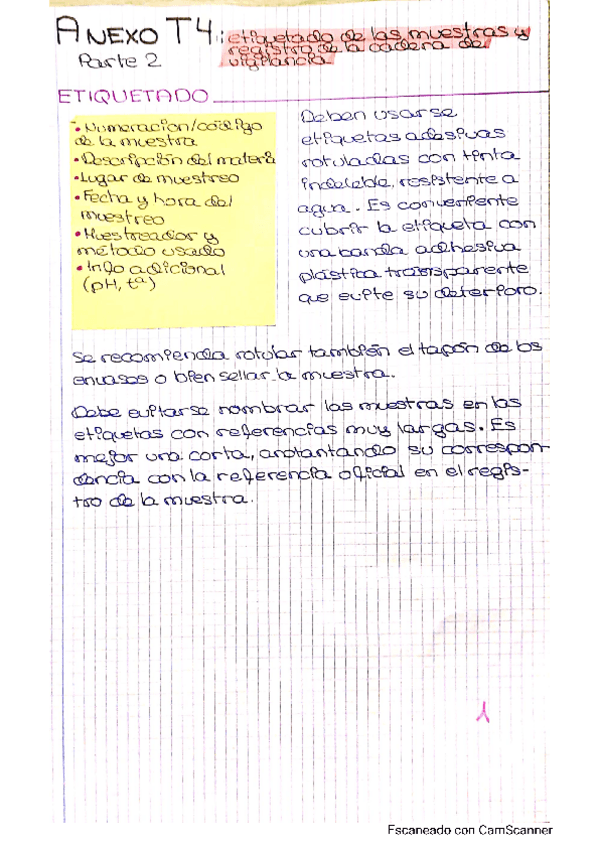 ANEXO T4: etiquetado de las muestras y
registro de la cadena de
vigilancia
Parte 2
ETIQUETADO
• Numeracion/código
de la muestra
• Descripción del materia
• Lugar de muestreo
• Fecha y hora del
muestreo
• Muestreador y
método usado
• Info adicional
(pH, tª)
Deben usarse
etiquetas adesivas
rotuladas con tinta
indeleble, resistente a
agua. Es conveniente
cubrir la etiqueta con
una banda adhesiva
plástica transparente
que evite su deterioro.
Se recomienda rotular también el tapón de los
envases o bien sellar la muestra.
Debe evitarse nombrar las muestras en las
etiquetas con referencias muy largas. Es
mejor una corta, anotantando su correspon-
dencia con la referencia oficial en el regis-
tro de la muestra.
1
Escaneado con CamScanner